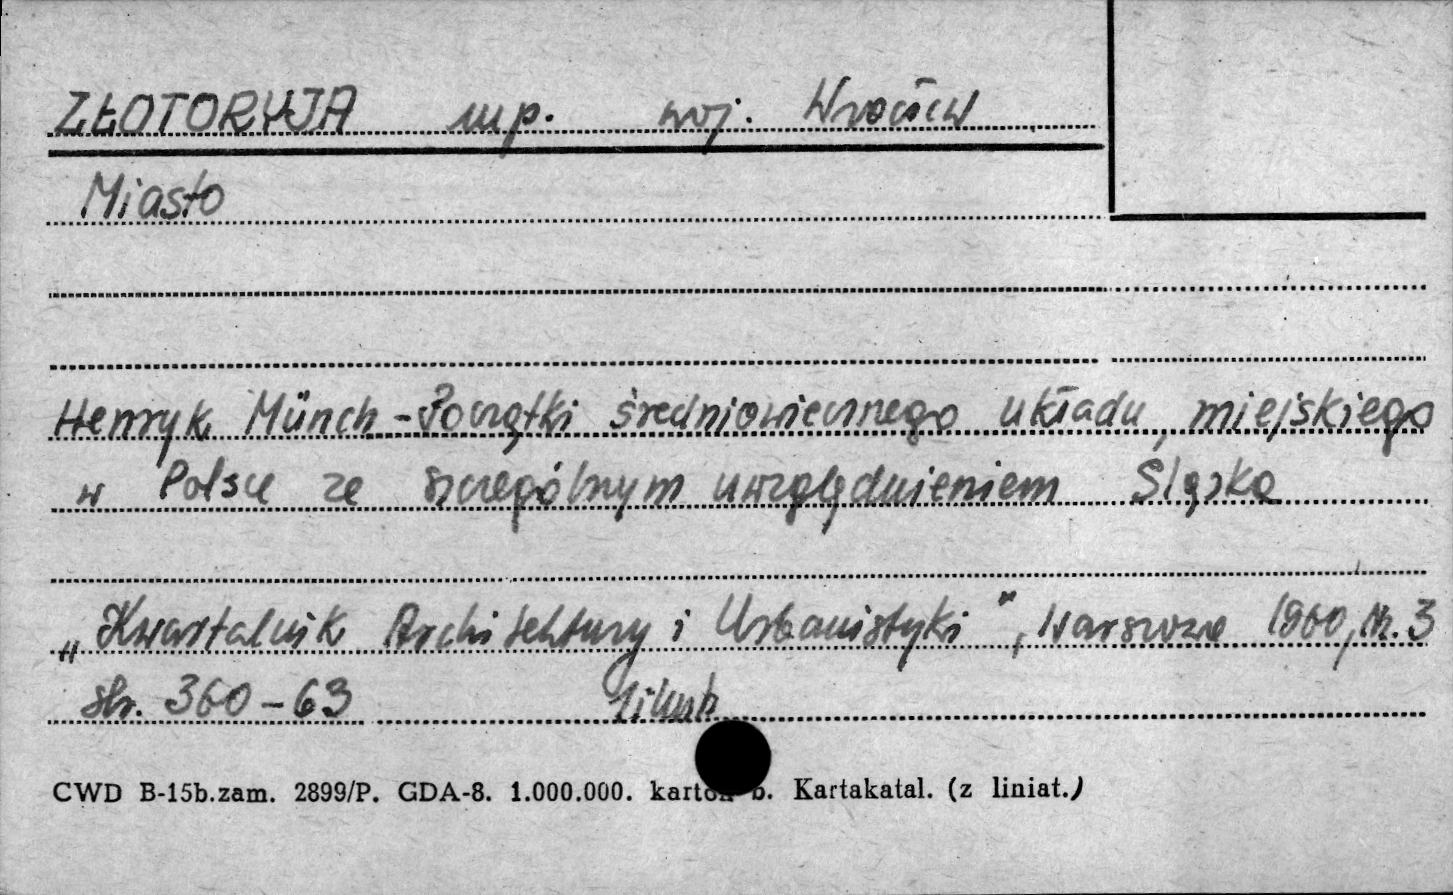 ZŁOTORYJA mp. woj. Wrocław
Miasto
Henryk Münch - Początki średniowiecznego układu miejskiego
w Polsce ze szczególnym uwzględnieniem Śląska
„Kwartalnik Architektury i Urbanistyki", Warszawa 1960, Nr. 3
str. 360-63
CWD B-15b.zam. 2899/P. GDA-8. 1.000.000. karton b. Kartakatal. (z liniat.)